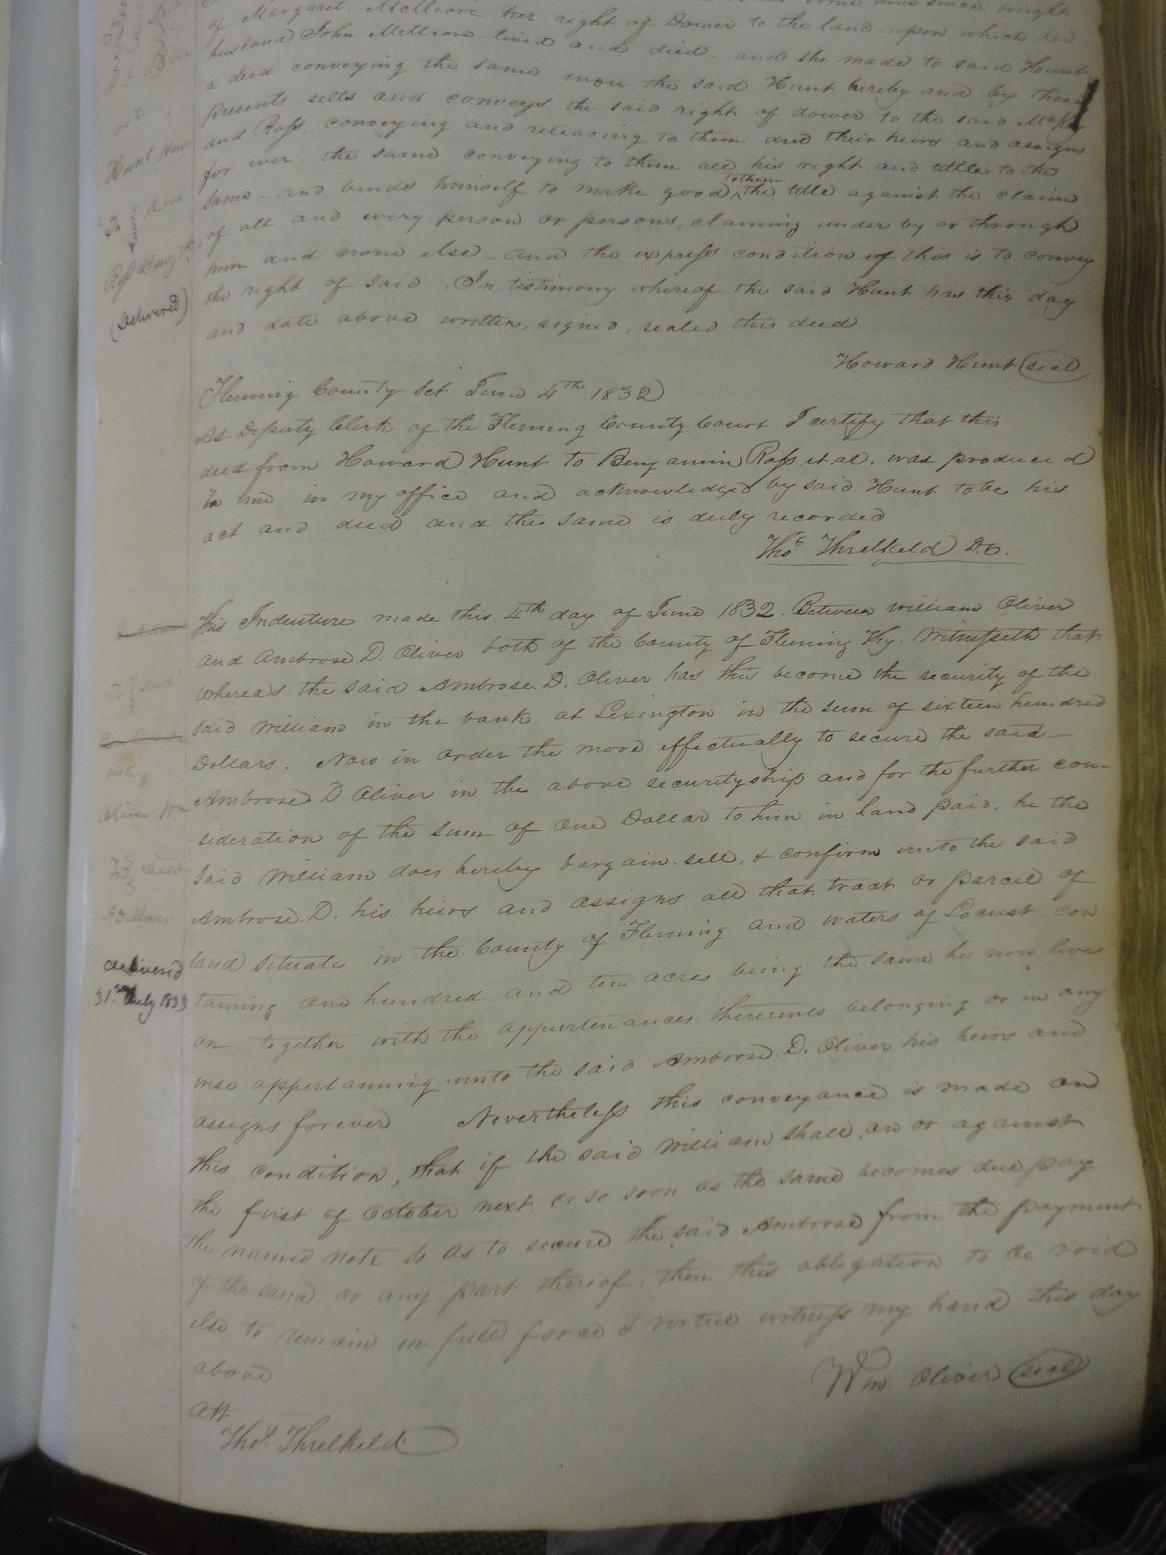 of Margaret McMeore her right of Dower to the land upon which her
husband John McMeore lived and died. and she made to said Hunt
a deed conveying the same now the said Hunt hereby and by these
presents sells and conveys the said right of dower to the said
and Ross. conveying and releasing to them and their heirs and assigns
for ever. the same conveying to them all his right and title to the
same - and binds himself to make good to them the title against the claim
of all and every person or persons, claiming under by or through
him and none else - and the express condition of this is to convey
the right of said. In testimony whereof the said Hunt has this day
and date above written, signed, sealed this deed
Howard Hunt (seal)
Fleming County Sct June 4th 1832
As Deputy Clerk of the Fleming County Court I certify that this
deed from Howard Hunt to Benjamin Ross et.al. was produced
to me in my office and acknowledged by said Hunt to be his
act and deed and the same is duly recorded
Thos Threlkeld D.C.
This Indenture made this 4th day of June 1832. Between William Oliver
and Ambrose D. Oliver both of the County of Fleming Ky. Witnesseth that
whereas the said Ambrose D. Oliver has this become the security of the
said William in the bank at Lexington in the sum of sixteen hundred
Dollars. Now in order the more effectually to secure the said -
Ambrose D Oliver in the above securityship and for the further con-
sideration of the sum of one Dollar to him in hand paid. he the
said William does hereby bargain. sell, & confirm unto the said
Ambrose. D. his heirs and assigns all that tract or parcel of
land situate in the County of Fleming and waters of Locust con
taining one hundred and ten acres being the same he now lives
on together with the appurtenances thereunto belonging or in any
wise appertaining unto the said Ambrose. D. Oliver his heirs and
assigns forever Nevertheless this conveyance is made on
this condition, that if the said William shall, on or against
the first of October next. or so soon as the same becomes due pay
the named note so as to secure the said Ambrose from the payment
of the same or any part thereof. then this obligation to be void
else to remain in full force & virtue witness my hand this day
above
Wm Oliver (seal)
Att
Thos. Threlkeld
Hunt
To
Ross Benj
(Delivered)
Oliver Wm
To deed
AD Oliver
delivered
31st July 1833